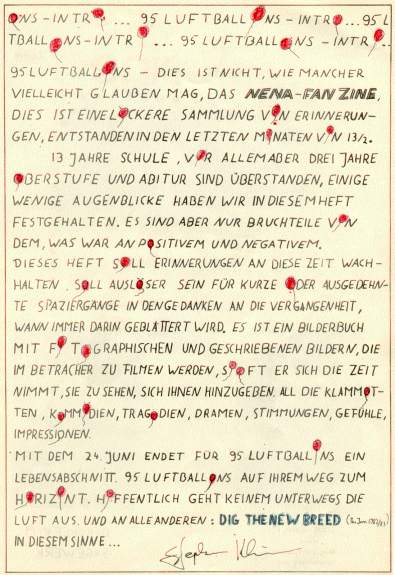 ONS-INTRO... 95 LUFTBALLONS-INTRO...95 L
TBALLONS-INTRO... 95 LUFTBALLONS-INTRO..
95 LUFTBALLONS – DIES IST NICHT, WIE MANCHER
VIELLEICHT GLAUBEN MAG, DAS NENA-FANZINE,
DIES IST EINE LOCKERE SAMMLUNG VON ERINNERUN-
GEN, ENTSTANDEN IN DEN LETZTEN MONATEN VON 13/2.
13 JAHRE SCHULE, VOR ALLEM ABER DREI JAHRE
OBERSTUFE UND ABITUR SIND ÜBERSTANDEN, EINIGE
WENIGE AUGENBLICKE HABEN WIR IN DIESEM HEFT
FESTGEHALTEN. ES SIND ABER NUR BRUCHTEILE VON
DEM, WAS WAR AN POSITIVEM UND NEGATIVEM.
DIESES HEFT SOLL ERINNERUNGEN AN DIESE ZEIT WACH-
HALTEN, SOLL AUSLÖSER SEIN FÜR KURZE ODER AUSGEDEHN-
TE SPAZIERGÄNGE IN DEN GEDANKEN AN DIE VERGANGENHEIT,
WANN IMMER DARIN GEBLÄTTERT WIRD. ES IST EIN BILDERBUCH
MIT FOTOGRAPHISCHEN UND GESCHRIEBENEN BILDERN, DIE
IM BETRACHER ZU FILMEN WERDEN, SOOFT ER SICH DIE ZEIT
NIMMT, SIE ZU SEHEN, SICH IHNEN HINZUGEBEN. ALL DIE KLAMMOT-
TEN, KOMMÖDIEN, TRAGÖDIEN, DRAMEN, STIMMUNGEN, GEFÜHLE,
IMPRESSIONEN.
MIT DEM 24. JUNI ENDET FÜR 95 LUFTBALLONS EIN
LEBENSABSCHNITT. 95 LUFTBALLONS AUF IHREM WEG ZUM
HORIZONT. HOFFENTLICH GEHT KEINEM UNTERWEGS DIE
LUFT AUS. UND AN ALLE ANDEREN: DIG THE NEW BREED
IN DIESEM SINNE...